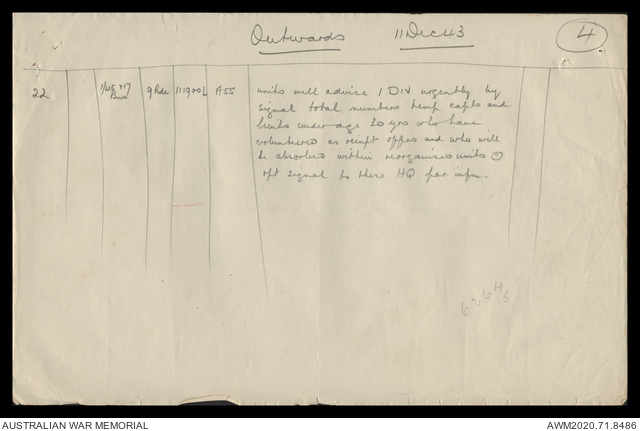 Outwards 11 Dec 43 4
22 9 Bde 111900L A55 units will advise 1 DIV urgently by
signal total numbers temp capts and
lieuts under age 30 yrs who have
volunteered as reinft offrs and who will
be absorbed within reorganised units
rpt signal to there HQ for infm.
62646
AUSTRALIAN WAR MEMORIAL AWM2020.71.8486